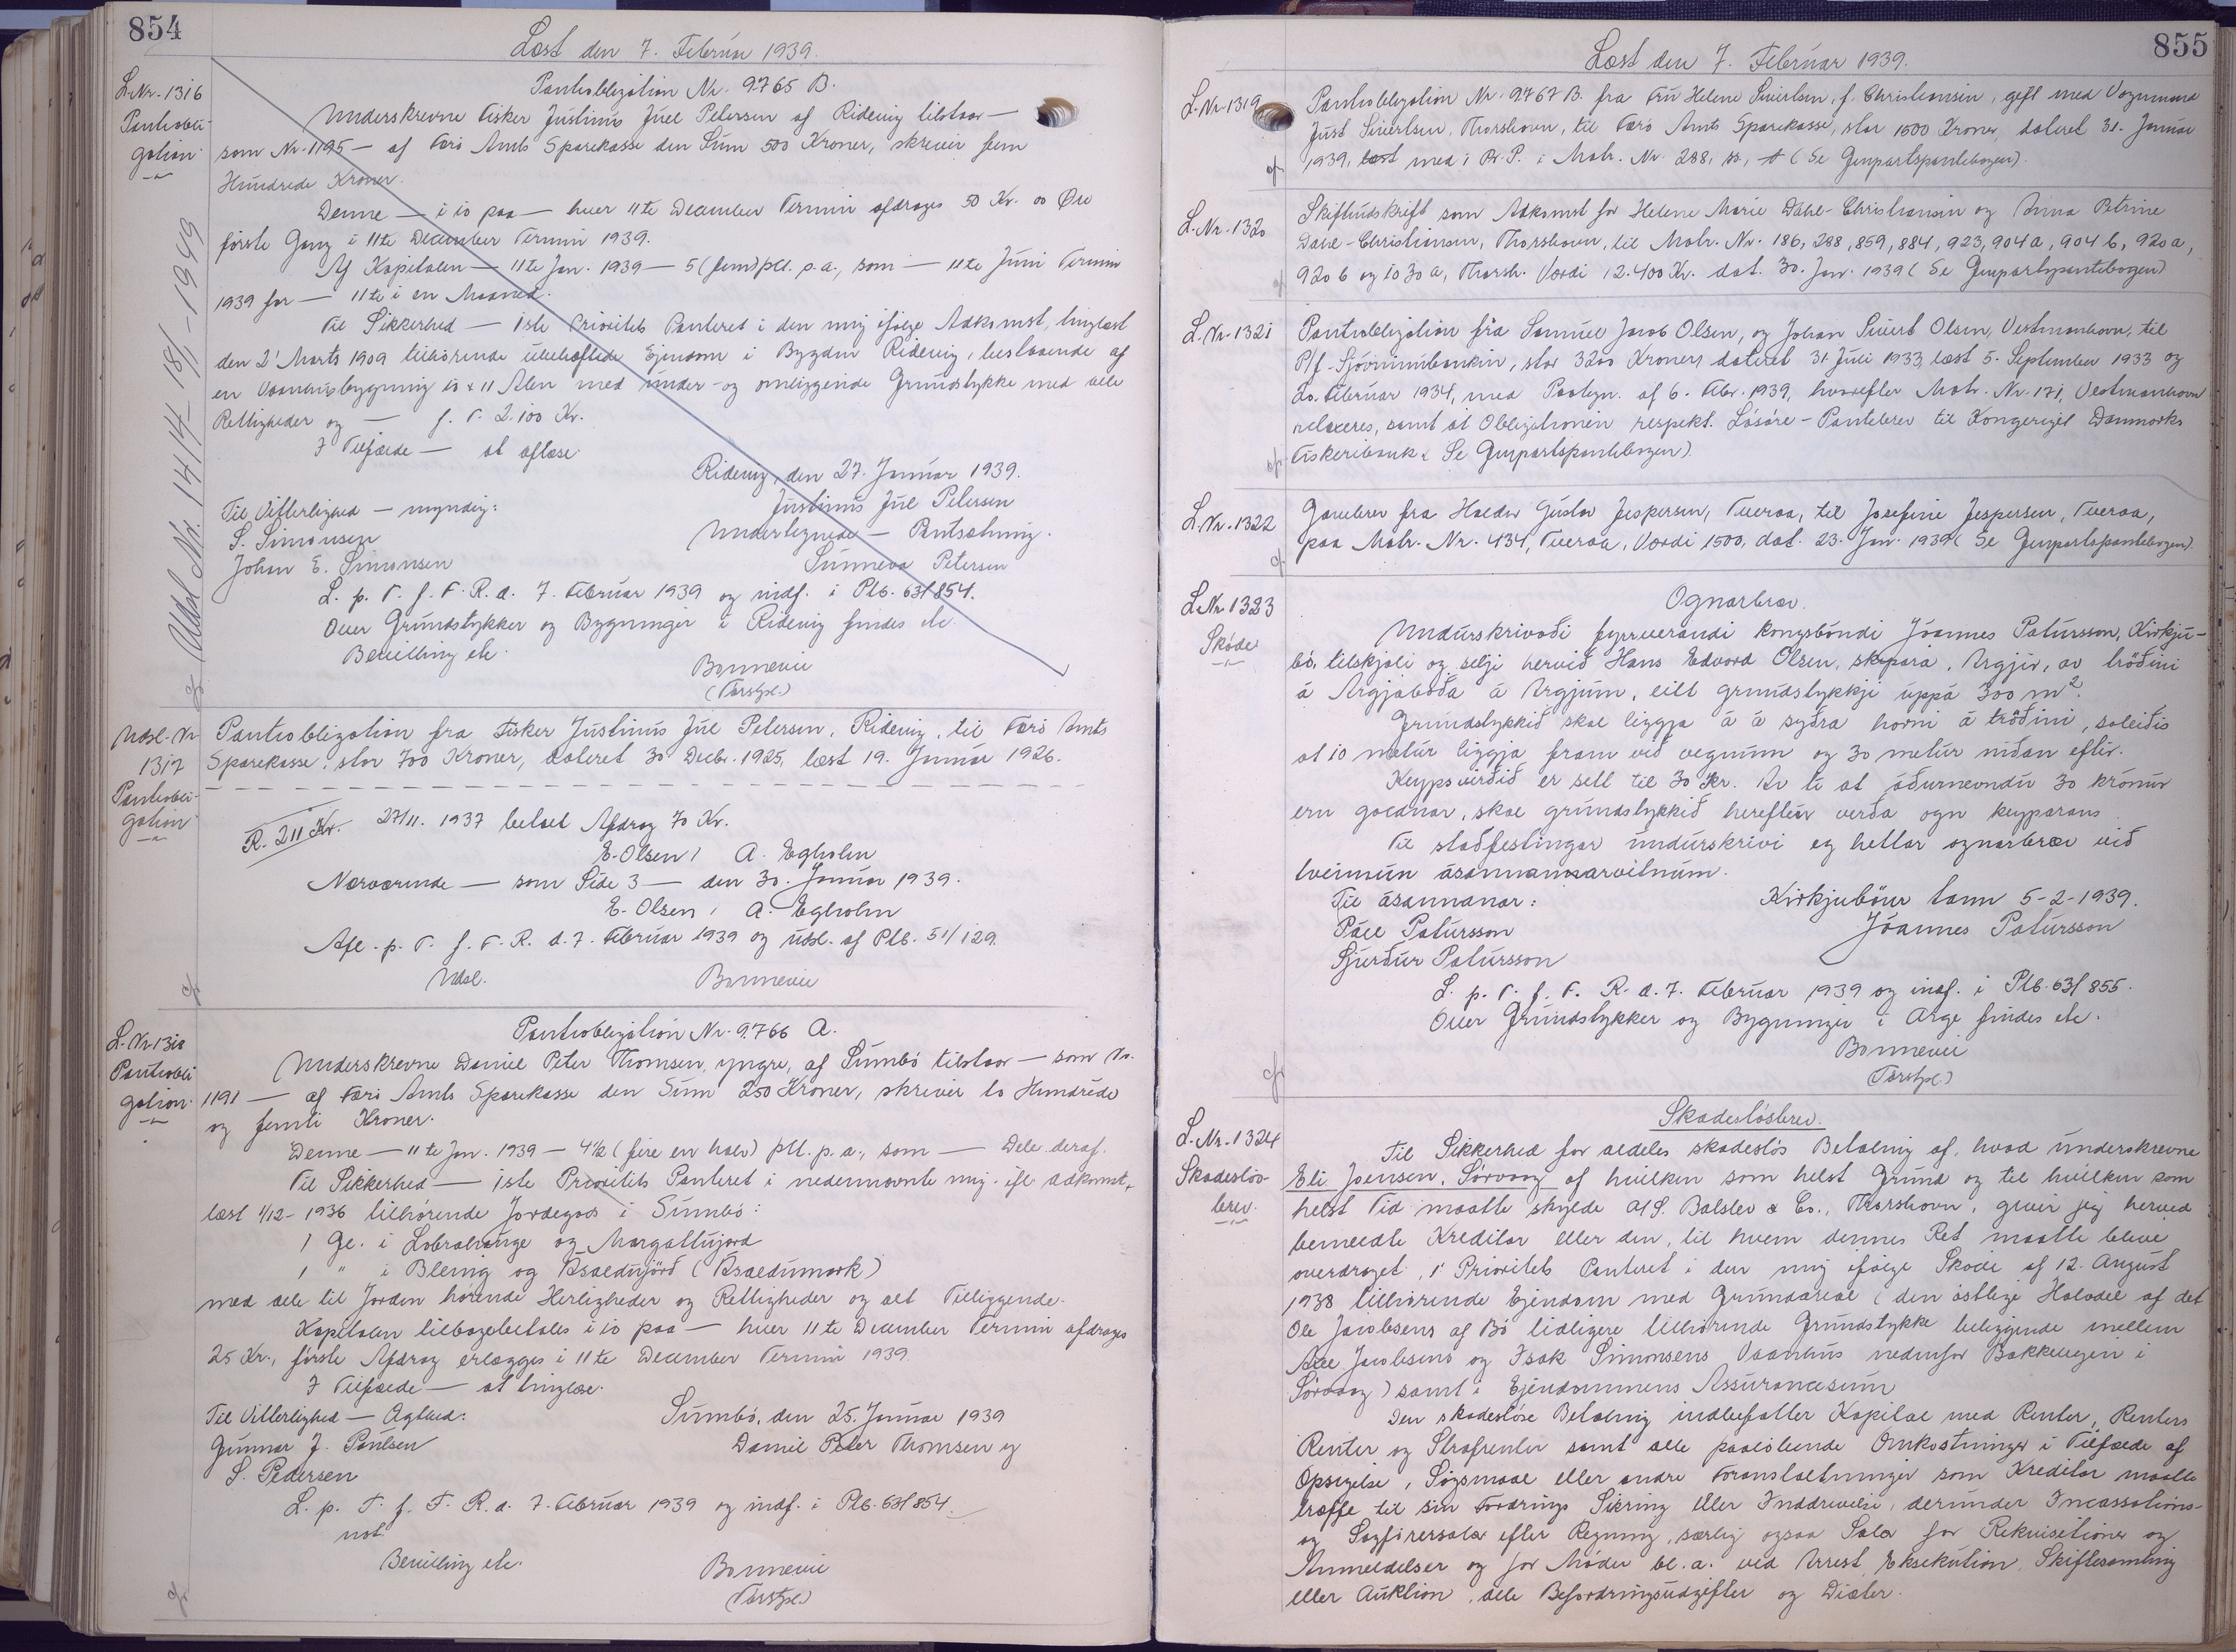 854
Læst den 7. Februar 1939.
L.Nr. 1316
Pantobli-
gation.
Udsl. Nr. 1414 - 18/1 - 1949
Pantobligation Nr. 9765 B.
Underskrevne Fisker Justinus Juel Petersen af Ridevig tilstaar —
som Nr. 1195 — af Færø Amts Sparekasse den Sum 500 Kroner, skriver fem
Hundrede Kroner.
Denne — i 10 paa — hver 11te December Termin afdrages 50 Kr. 00 Øre
første Gang i 11te December Termin 1939.
Af Kapitalen — 11te Jan. 1939 — 5 (fem) pCt. p.a., som — 11te Juni Termin
1939 for — 11te i en Maaned.
Til Sikkerhed — 1ste Prioritets Panteret i den mig ifølge Adkomst, tinglæst
den 2' Marts 1909 tilhørende ubehæftede Ejendom i Bygden Ridevig, bestaaende af
en Vaanhusbygning 10 x 11 Alen med under- og omliggende Grundstykke med alle
Rettigheder og — f. V. 2.100 Kr.
I Tilfælde — at aflæse.
Ridevig, den 27. Januar 1939.
Justinus Jul Petersen
Til Vitterlighed — myndig:
Undertegnede — Pantsætning.
S. Simonsen
Sunneva Petersen
Johan E. Simonsen
L. p. T. f. F. R. d. 7. Februar 1939 og indf. i Ptb. 63/854.
Over Grundstykker og Bygninger i Ridevig findes etc.
Bevilling etc.
Bonnevie
(Farstpl.)
Udsl. Nr
1317
Pantobli-
gation
Pantobligation fra Fisker Justinus Jul Petersen, Ridevig, til Færø Amts
Sparekasse, stor 700 Kroner, dateret 30 Decbr. 1925, læst 19. Januar 1926.
R. 211 Kr. 27/11. 1937 betalt Afdrag 70 Kr.
E. Olsen / A. Egholm
Nærværende — som Side 3 — den 30. Januar 1939.
E. Olsen / A. Egholm
Afl. p. T. f. F. R. d. 7. Februar 1939 og udsl. af Ptb. 51/129.
Udsl. Bonnevie
L.Nr 1318
Pantobli
gation.
Pantobligation Nr. 9766 A.
Underskrevne Daniel Peter Thomsen, yngre, af Sumbø tilstaar — som Nr.
1191 — af Færø Amts Sparekasse den Sum 250 Kroner, skriver to Hundrede
og femti Kroner.
Denne — 11te Jan. 1939 — 4½ (fire en halv) pCt. p.a., som — Dele deraf.
Til Sikkerhed — 1ste Prioritets Panteret i nedennævnte mig ifl. Adkomst,
læst 1/12- 1936 tilhørende Jordegods i Sumbø:
1 Gl. i Lobrahauge og Margattujørd
1 " i Bleing og Asaldujörd (Asaldumork)
med alle til Jorden hørende Herligheder og Rettigheder og alt Tilliggende.
Kapitalen tilbagebetales i 10 paa — hver 11te December Termin afdrages
25 Kr., første Afdrag erlægges i 11te December Termin 1939.
I Tilfælde — at tinglæse.
Til Vitterlighed — Ægthed:
Sumbø, den 25. Januar 1939
Gunnar J. Poulsen
Daniel Peter Thomsen y
S. Pedersen
L. p. T. f. F. R. d. 7. Februar 1939 og indf. i Ptb. 63/854.
not.
Bevilling etc.
Bonnevie
(Farstpl.)
855
Læst den 7. Februar 1939.
L.Nr 1319
Pantobligation Nr. 9767 B. fra Fru Helene Sivertsen, f. Christiansen, gift med Vognmand
Just Sivertsen, Thorshavn, til Færø Amts Sparekasse, stor 1500 Kroner, dateret 31. Januar
1939, læst med i Pr. P. i Matr. Nr. 288, (Se Genpartspantebogen).
L.Nr. 1320
Skifteudskrift som Adkomst for Helene Marie Dahl-Christiansen og Anna Petrine
Dahl-Christiansen, Thorshavn, til Matr. Nr. 186, 288, 859, 884, 923, 904a, 904b, 920a,
920b og 1030a, Thorsh. Værdi 12.400 Kr. dat. 30. Jan. 1939 (Se Genpartspantebogen)
L.Nr. 1321
Pantobligation fra Samuel Jacob Olsen, og Johan Sivert Olsen, Vestmanhavn, til
P/f. Sjóvinnubankin, stor 3200 Kroner, dateret 31. Juli 1933, læst 5. September 1933 og
20. Februar 1934, med Paategn. af 6. Febr. 1939, hvorefter Matr. Nr. 171, Vestmanhavn
relaxeres, samt at Obligationen respekt. Løsøre-Pantebrev til Kongeriget Danmarks
Fiskeribank (Se Genpartspantebogen).
L.Nr. 1322
Gavebrev fra Haldor Gustav Jespersen, Tveraa, til Josefine Jespersen, Tveraa,
paa Matr. Nr. 434, Tveraa, Værdi 1500, dat. 23. Jan. 1939 (Se Genpartspantebogen)
L.Nr 1323
Skøde
Ognarbræv.
Undurskrivaði fyrrverandi kongsbóndi Jóannes Patursson, Kirkju-
bö, tilskjoti og selji hervið Hans Edvard Olsen, skipara, Argjir, av tröðini
á Argjaboða á Argjum, eitt grundstykkji uppá 300 m².
Grundstykkið skal liggja á á syðra horni á tröðini, soleiðis
at 10 metur liggja fram við vegnum og 30 metur niðan eftir.
Keypsvirðið er sett til 30 kr. Av tí at áðurnevndu 30 krónur
eru goldnar, skal grundstykkið hereftir verða ogn keyparans
Til staðfestingar undurskrivi eg hettar ognarbræv við
tveimun ásannanarvitnum.
Til ásannanar:
Kirkjubøur tann 5-2-1939.
Páll Patursson
Jóannes Patursson
Sjurður Patursson
L. p. T. f. F. R. d. 7. Februar 1939 og indf. i Ptb. 63/855.
Over Grundstykker og Bygninger i Arge findes etc.
Bonnevie
(Farstpl.)
L.Nr. 1324
Skadesløs-
brev.
Skadesløsbrev.
Til Sikkerhed for aldeles skadesløs Betaling af, hvad underskrevne
Eli Joensen, Sørvaag af hvilken som helst Grund og til hvilken som
helst Tid maatte skylde A/S. Balslev & Co., Thorshavn, giver jeg herved
bemeldte Kreditor eller den, til hvem dennes Ret maatte blive
overdraget, 1' Prioritets Panteret i den mig ifølge Skøde af 12. August
1938 tilhørende Ejendom med Grundareal (den østlige Halvdel af det
Ole Jacobsens af Bø tidligere tilhørende Grundstykke beliggende mellem
Axel Jacobsens og Isak Simonsens Vaanhus nedenfor Bakkevegin i
Sørvaag) samt i Ejendommens Assurancesum
Den skadesløse Betaling indbefatter Kapital med Renter, Renters
Renter og Strafrenter samt alle paaløbende Omkostninger i Tilfælde af
Opsigelse, Søgsmaal eller andre Foranstaltninger som Kreditor maatte
træffe til sin Fordrings Sikring eller Inddrivelse, derunder Incassations-
og Sagførersalær efter Regning, særlig ogsaa Salær for Rekvisitioner og
Anmeldelser og for Møder bl.a. ved Arrest, Eksekution, Skiftesamling
eller Auktion, alle Befordringsudgifter og Diæter.